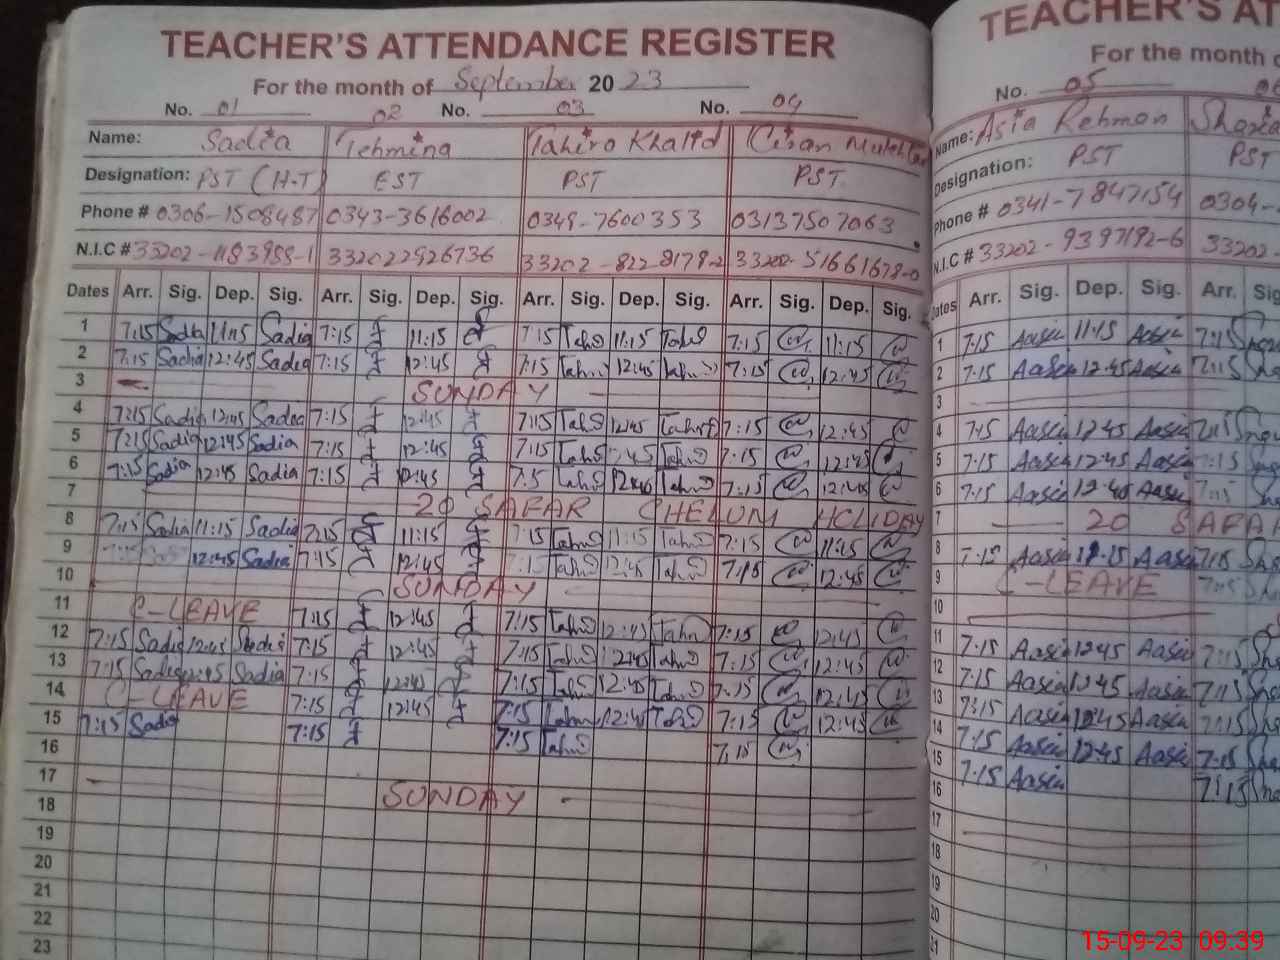 TEACHER'S ATTENDANCE REGISTER
For the month of September 20 23
No. 01 02 No. 03 No. 04
Name: Sadia Tehmina Tahira Khalid Kiran
Designation: PST (H.T) EST PST PST
Phone # 0306-1508487 0343-3616002 0348-7600353 03137507063
N.I.C # 33202-1183988-1 332022926736 33202-822 8178-2 33202-51661678-0
Dates Arr. Sig. Dep. Sig. Arr. Sig. Dep. Sig. Arr. Sig. Dep. Sig. Arr. Sig. Dep. Sig.
1 7:15 Sadia 11:15 Sadia 7:15 11:15 7:15 11:15 7:15 11:15
2 7:15 Sadia 12:45 Sadia 7:15 12:45 7:15 12:45 7:15 12:45
3 SUNDAY
4 7:15 Sadia 12:45 Sadia 7:15 12:45 7:15 12:45 7:15 12:45
5 7:15 Sadia 12:45 Sadia 7:15 12:45 7:15 12:45 7:15 12:45
6 7:15 Sadia 12:45 Sadia 7:15 12:45 7:15 12:45 7:15 12:45
7 20 SAFAR CHELUM HOLIDAY
8 7:15 Sadia 11:15 Sadia 7:15 11:15 7:15 11:15 7:15 11:15
9 7:15 12:45 Sadia 7:15 12:45 7:15 12:45 7:15 12:45
10 SUNDAY
11 C-LEAVE 7:15 12:45 7:15 12:45 7:15 12:45
12 7:15 Sadia 12:45 Sadia 7:15 12:45 7:15 12:45 7:15 12:45
13 7:15 Sadia 12:45 Sadia 7:15 12:45 7:15 12:45 7:15 12:45
14 C-LEAVE 7:15 12:45 7:15 12:45 7:15 12:45
15 7:15 Sadia 7:15 7:15 7:15
16
17 SUNDAY
18
19
20
21
22
23
TEACHER'S AT
For the month
No. 05
Name: Asia Rehman
Designation: PST PST
Phone # 0341-7847154 0304-
N.I.C # 33202-9397192-6 33202-
Dates Arr. Sig. Dep. Sig. Arr.
1 7:15 Aasia 11:15 Aasia 7:15
2 7:15 Aasia 12:45 Aasia 7:15
3
4 7:15 Aasia 12:45 Aasia 7:15
5 7:15 Aasia 12:45 Aasia 7:15
6 7:15 Aasia 12:45 Aasia 7:15
7 20 SAFAR
8 7:15 Aasia 11:15 Aasia 7:15
9 C-LEAVE 7:15
10
11 7:15 Aasia 12:45 Aasia 7:15
12 7:15 Aasia 12:45 Aasia 7:15
13 7:15 Aasia 12:45 Aasia 7:15
14 7:15 Aasia 12:45 Aasia 7:15
15 7:15 Aasia 7:15
16
17
18
19
20
21
15-09-23 09.39